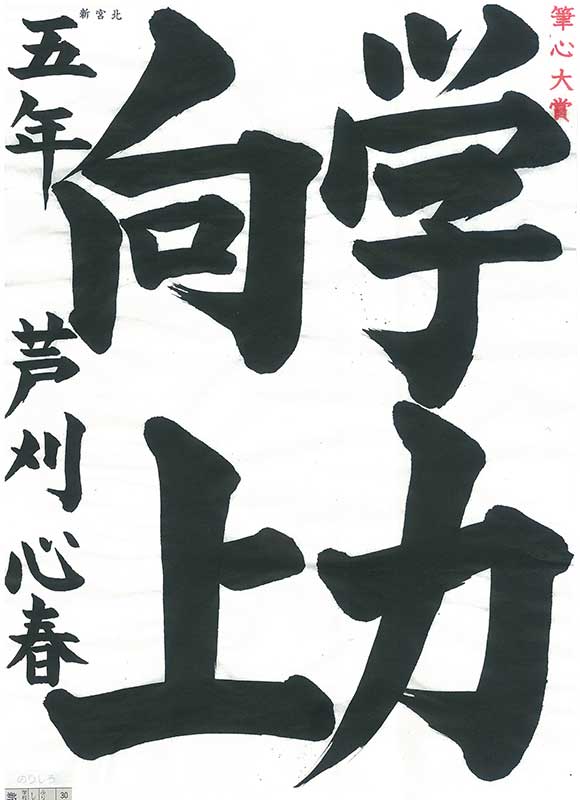 筆心大賞
学力
向上
新宮北
五年 芦刈心春
のりしろ
30